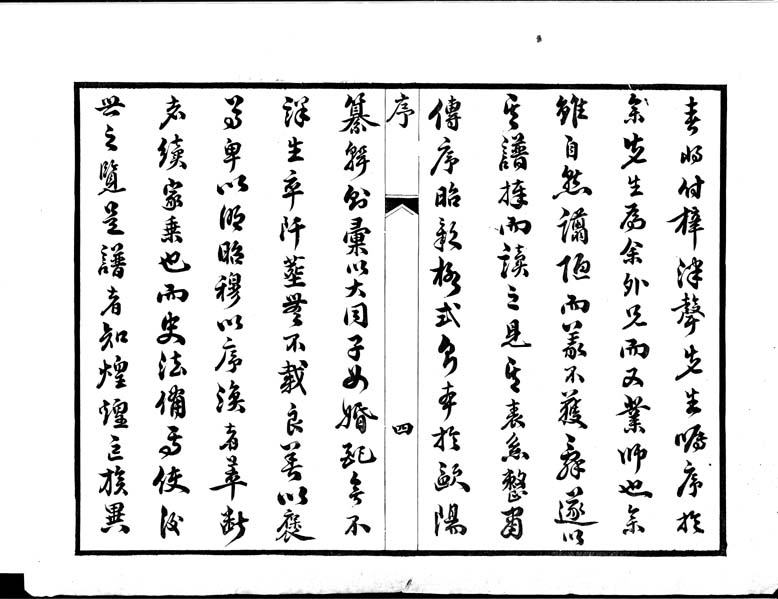 春將付梓津聲先生囑序於
余先生為余外兄而又業師也余
雖自然譾陋而義不獲辭遂以
其譜捧而讀之見其表系整肅
傳序昭新格式多本於歐陽
序
四
纂輯則彙以大同子女婚配無不
詳生卒阡塋無不載良善以褒
尊卑以明昭穆以序渙者萃斷
者續家乘也而史法備焉使後
世之覽是譜者知煌煌巨族異